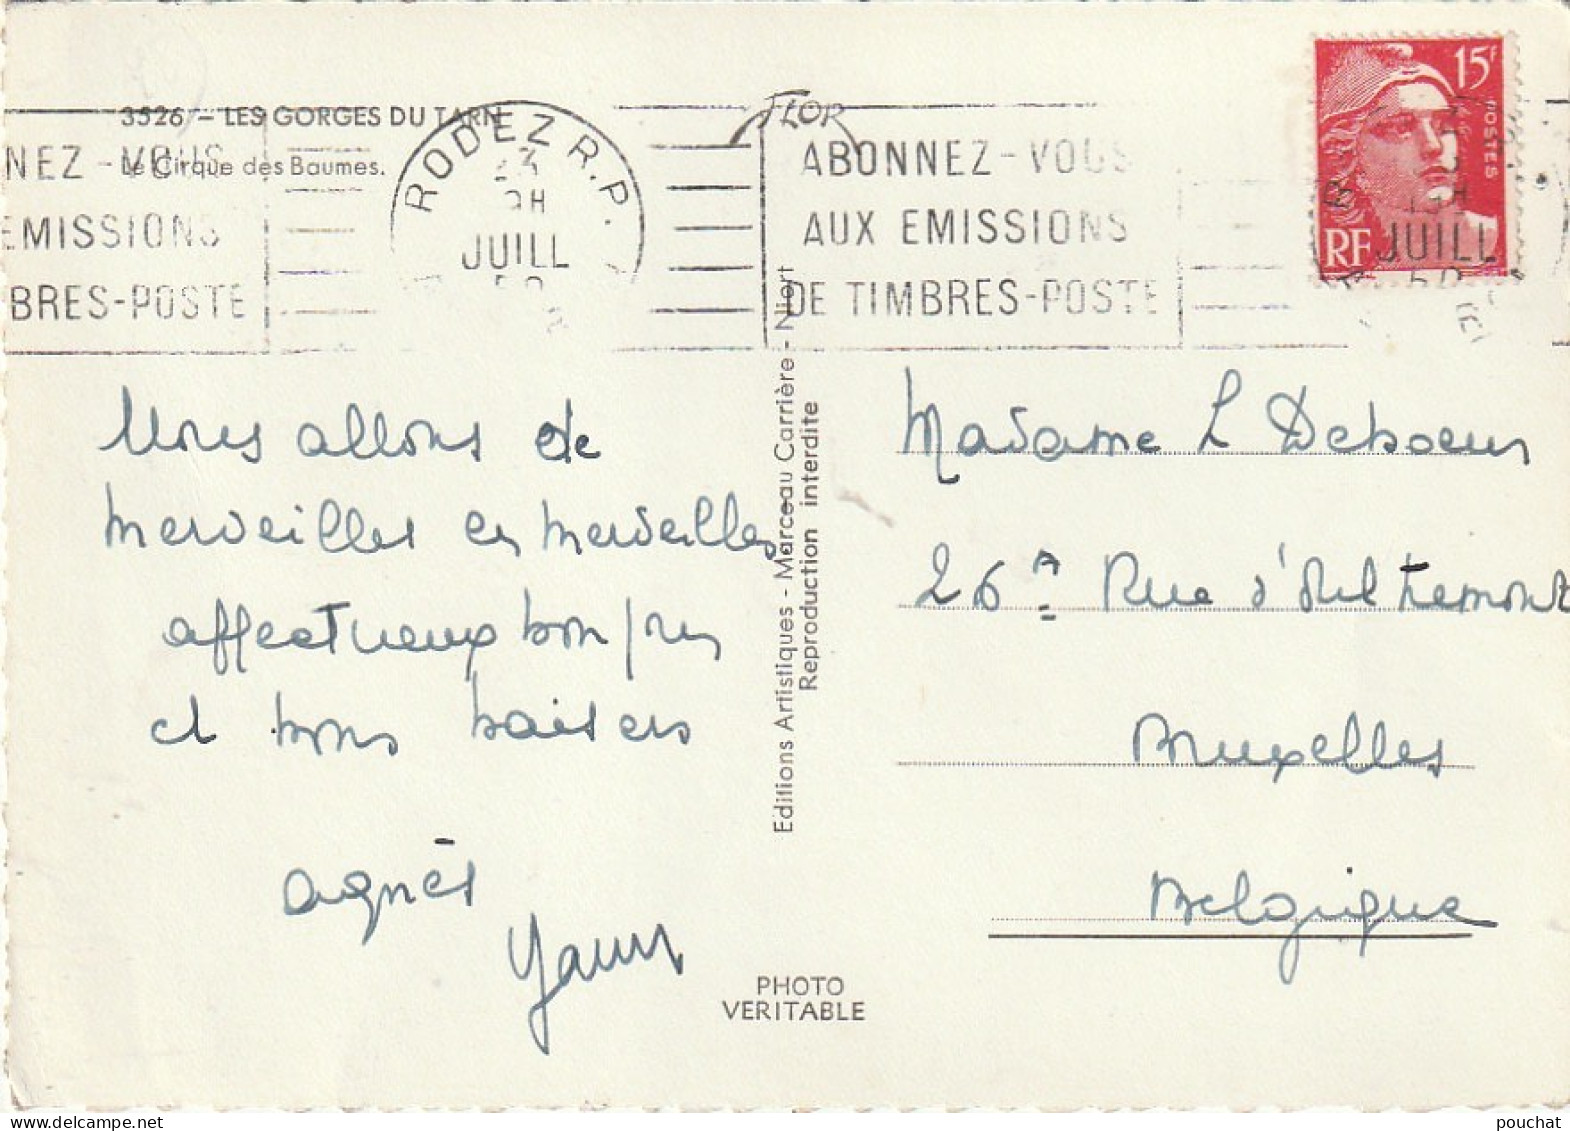 3526 – LES GORGES DU TARN
Le Cirque des Baumes.
NEZ - VOUS
EMISSIONS
BRES-POSTE
RODEZ R.P.
23
9H
JUILL
FLOR
ABONNEZ - VOUS
AUX EMISSIONS
DE TIMBRES-POSTE
15F
POSTES
RF
JUILL
Nous allons de
merveilles en merveilles
affectueux bonjours
et bons baisers
agnès
Yann
Editions Artistiques - Marceau Carrière - Niort
Reproduction interdite
PHOTO
VERITABLE
Madame L Deboeur
26A Rue d'Oultremont
Bruxelles
Belgique
pouchat